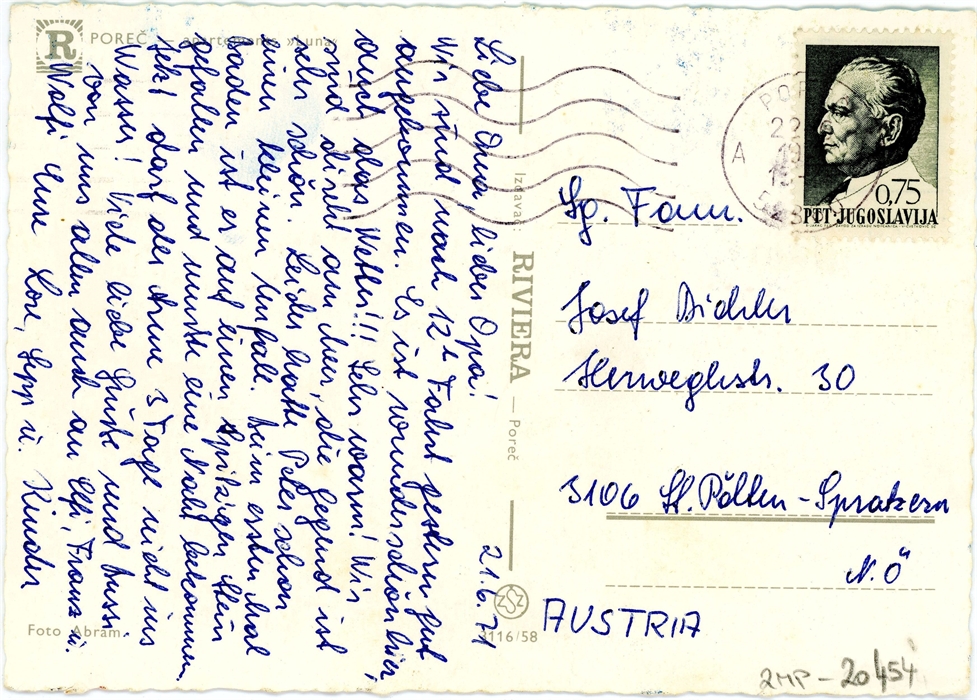 R
POREČ — apartements »Luna«
21.6.71
Liebe Oma, lieber Opa!
Wir sind nach 12h Fahrt gestern gut
angekommen. Es ist wunderschön hier,
auch das Wetter!!! Sehr warm! Wir
sind direkt am Meer, die Gegend ist
sehr schön. Leider hatte Peter schon
einen kleinen Unfall. Beim ersten Mal
Baden ist er auf einen spitzigen Stein
gefallen und musste eine Naht bekommen,
jetzt darf der Arme 3 Tage nicht ins
Wasser! Viele liebe Grüße und Bussi
von uns allen auch an Elfi, Franz u.
Wolfi Eure Lore, Sepp u. Kinder
Foto Abram
Izdavač RIVIERA — Poreč
ZSZ
3116/58
POR
22
A
0,75
PTT·JUGOSLAVIJA
Sg. Fam.
Josef
Herweghstr. 30
3106 St. Pölten-Spratzern
N.Ö
AUSTRIA
2MP-20454